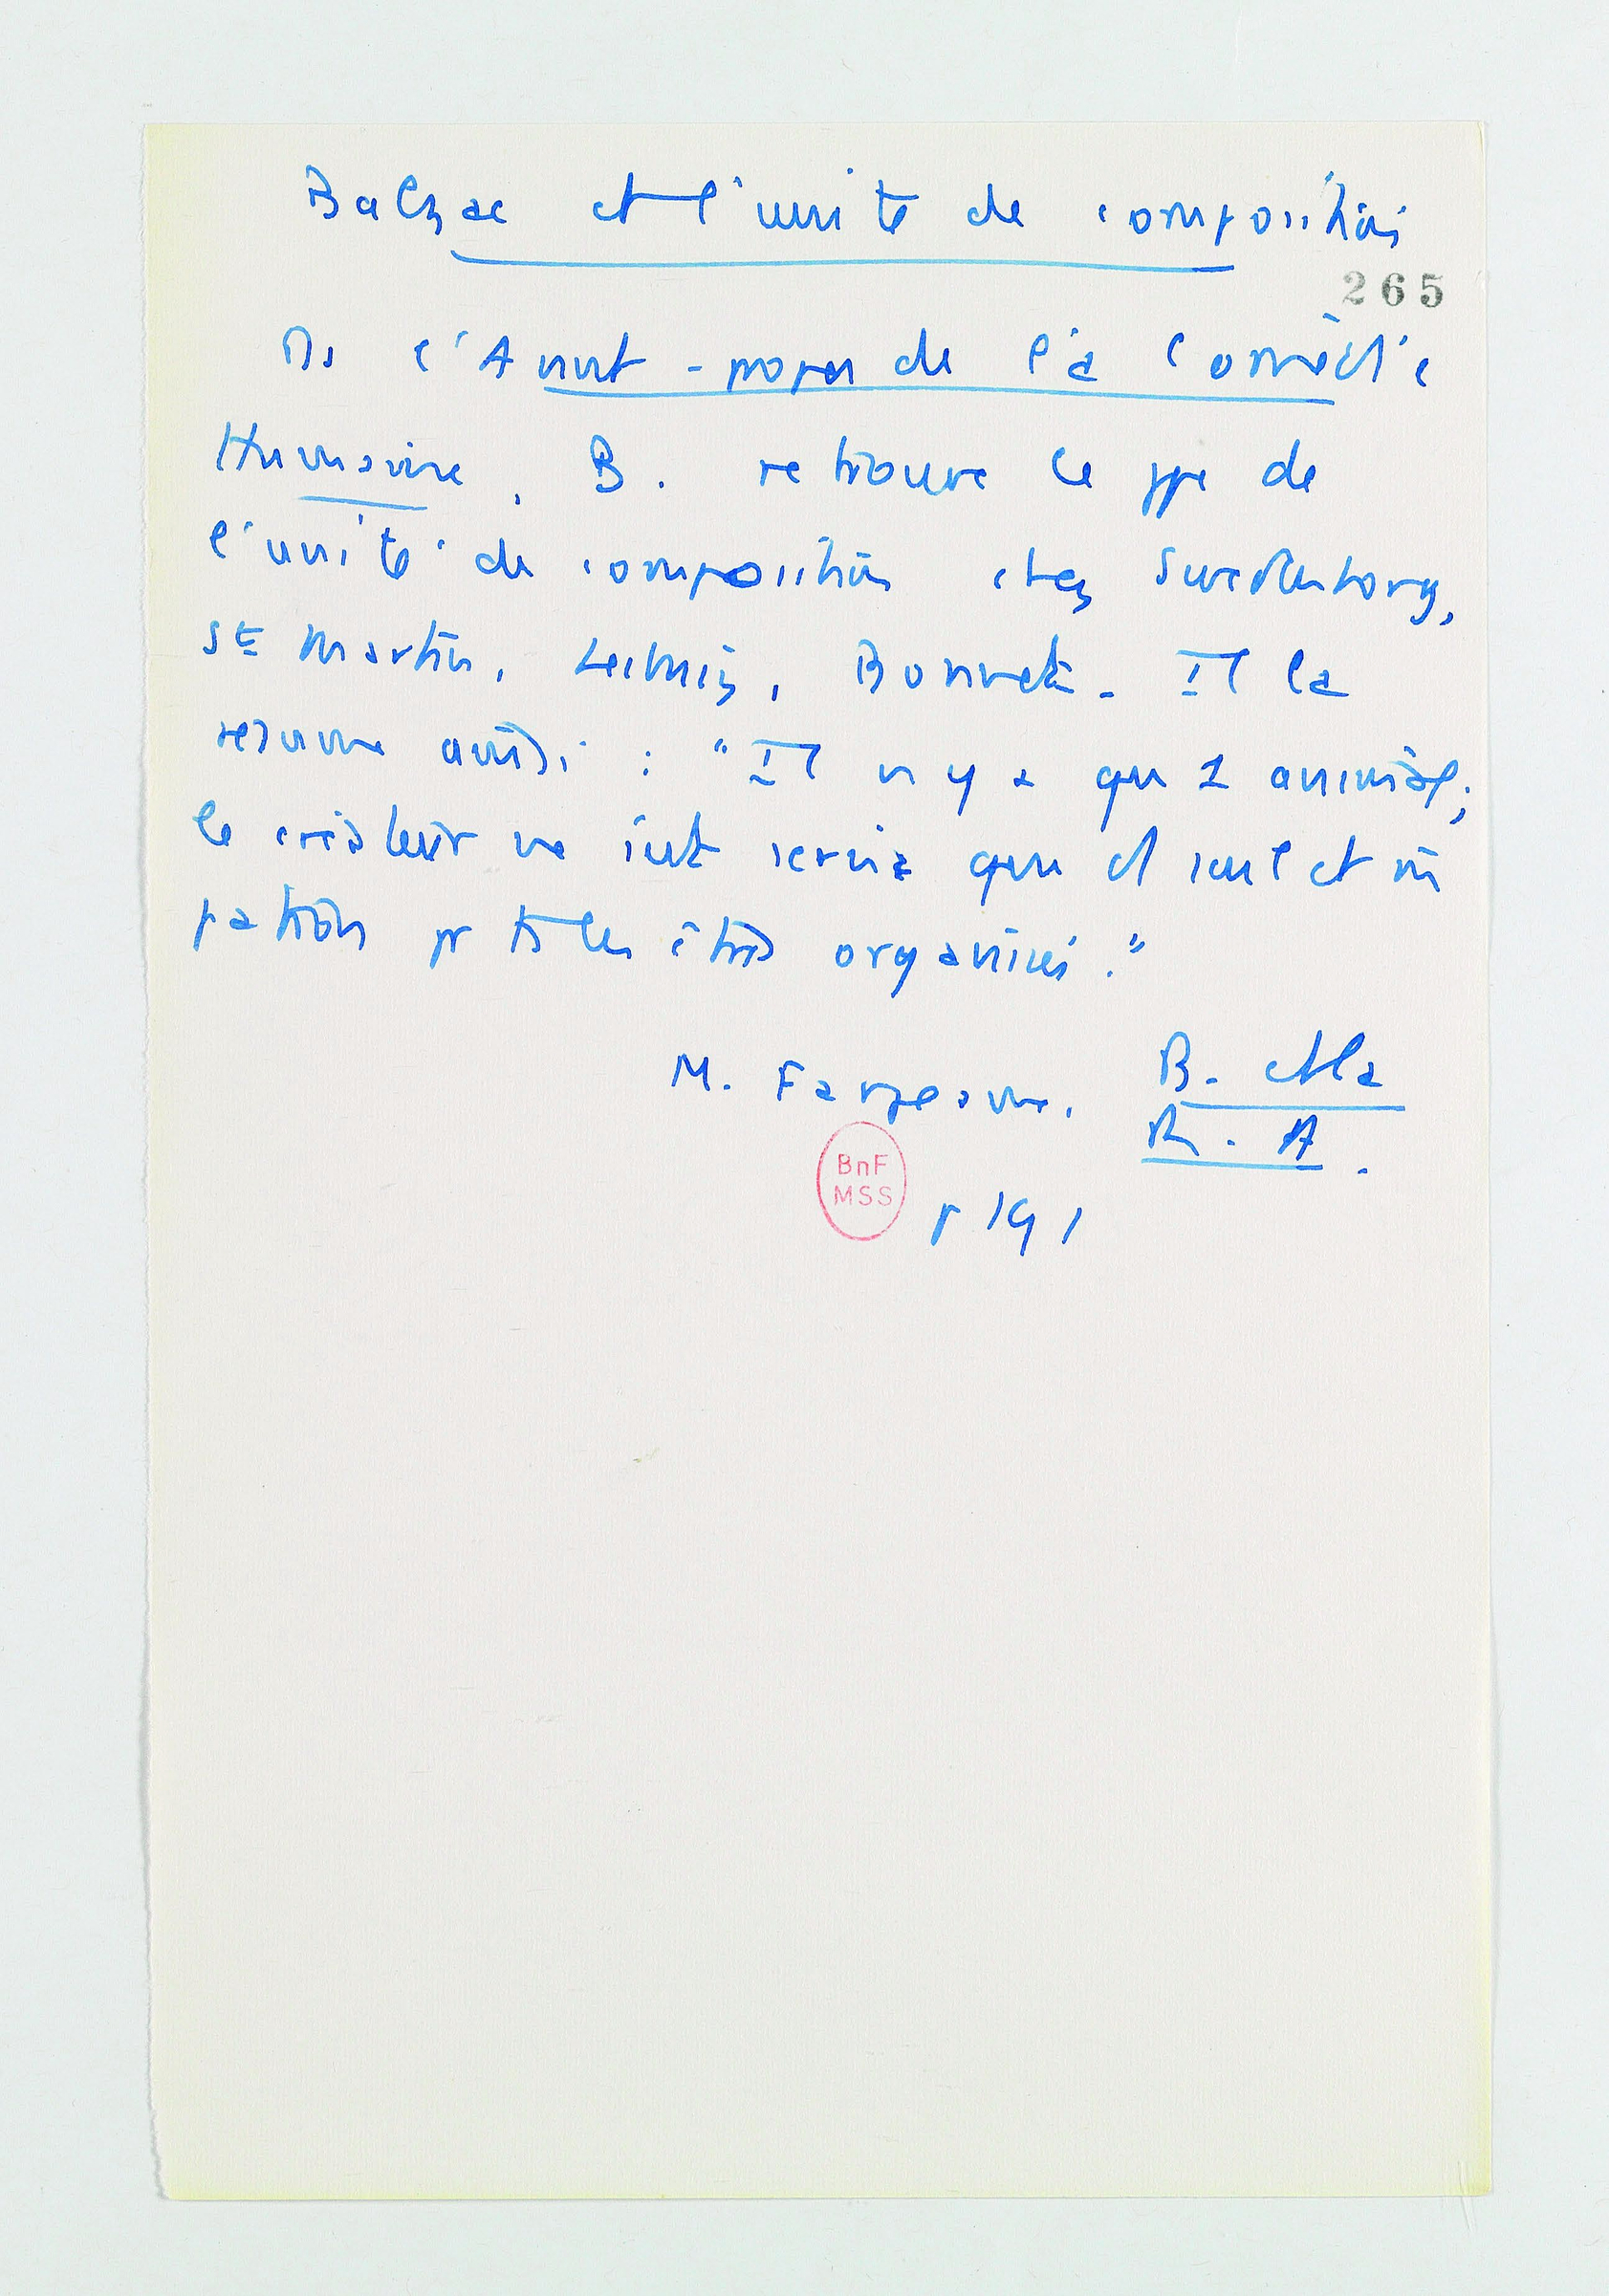 Balzac et l'unité de composition
265
Ds l'Avant-propos de la Comédie
Humaine, B. retrouve le ppe de
l'unité de composition chez Swedenborg,
St Martin, Leibniz, Bonnet. Il la
résume ainsi : "Il n'y a qu'1 animal ;
le créateur ne s'est servi que d'1 seul et m̂
patron pr ts les êtres organisés."
M. Fargeaud. B. et la
R. A.
BnF
MSS
p 191